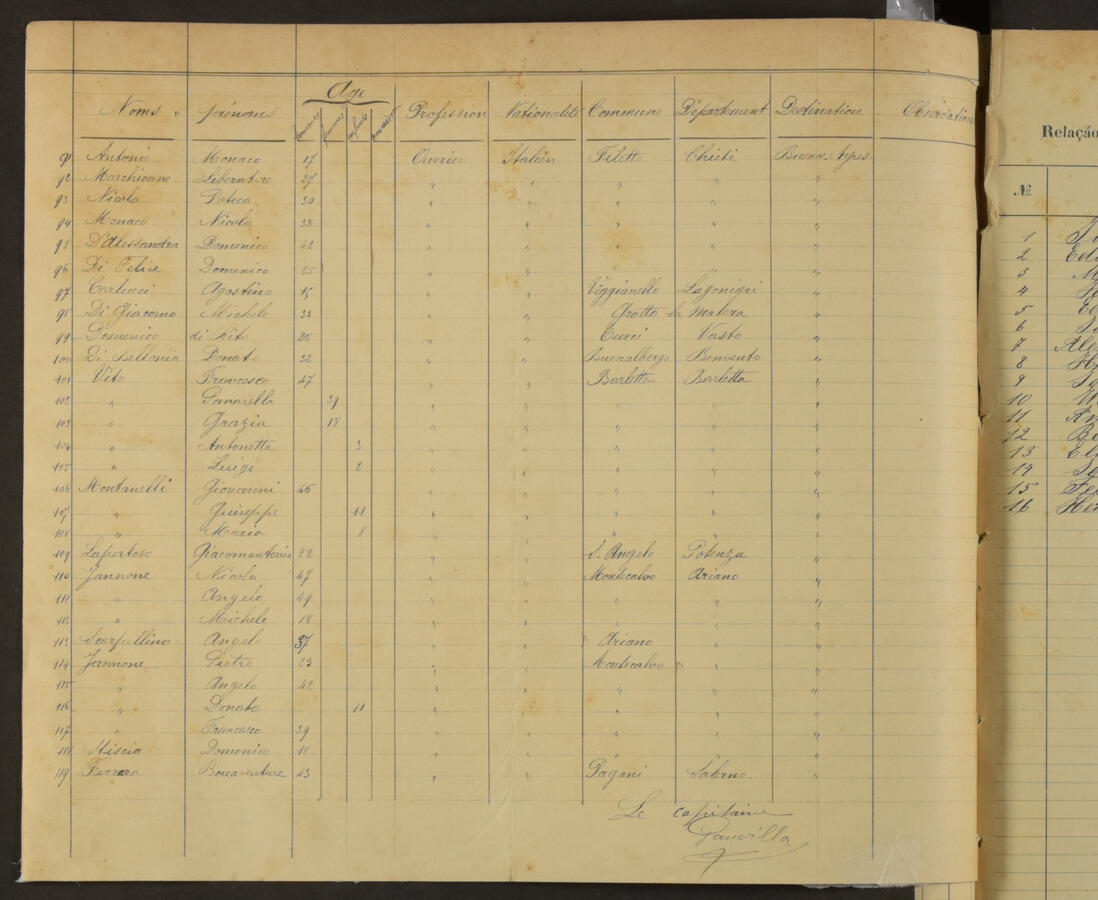 Age
Noms & prénoms Profession Nationalité Commune Département Destination Observation
91 Antonio Monaco 17 Ouvrier Italien Filetto Chieti Buenos Ayres
92 Marchionne Liberatore 27 " " " " "
93 Nicola Peteca 30 " " " " "
94 Monaco Nicola 38 " " " " "
95 D'Alessandra Domenico 42 " " " " "
96 Di Felice Domenico 25 " " " " "
97 Carlucci Agostino 15 " " Viggianello Lagonigri "
98 Di Giacomo Michele 32 " " Grotto la Matera "
99 Domenico di Rito 25 " " Curci Vasto "
100 Di Bellonia Donato 32 " " Buonalbergo Benvento "
101 Vito Francesco 47 " " Barletta Barletta "
102 " 39 " " " " "
103 " Grazia 18 " " " " "
104 " Antonetta 3 " " " " "
105 " Luigi 2 " " " " "
106 Montanelli Giovanni 46 " " " " "
107 " Guiseppe 11 " " " " "
108 " Maria 8 " " " " "
109 Laportoso Giacomantonio 22 " " S. Angelo Potenza "
110 Jannone Nicola 47 " " Montecalvo Ariano "
111 " Angelo 49 " " " " "
112 " Michele 18 " " " " "
113 Scarpellino Angelo 37 " " Ariano " "
114 Jannone Pietro 23 " " Montecalvo " "
115 " Angelo 42 " " " " "
116 " Donato 11 " " " " "
117 " Francesco 39 " " " " "
118 Miscia Domenico 18 " " " " "
119 Ferrara Bonaventure 43 " " Pagani Salerno "
Le capitaine
Relação
Nº
1
2
3
4
5
6
7
8
9
10
11
12
13
14
15
16